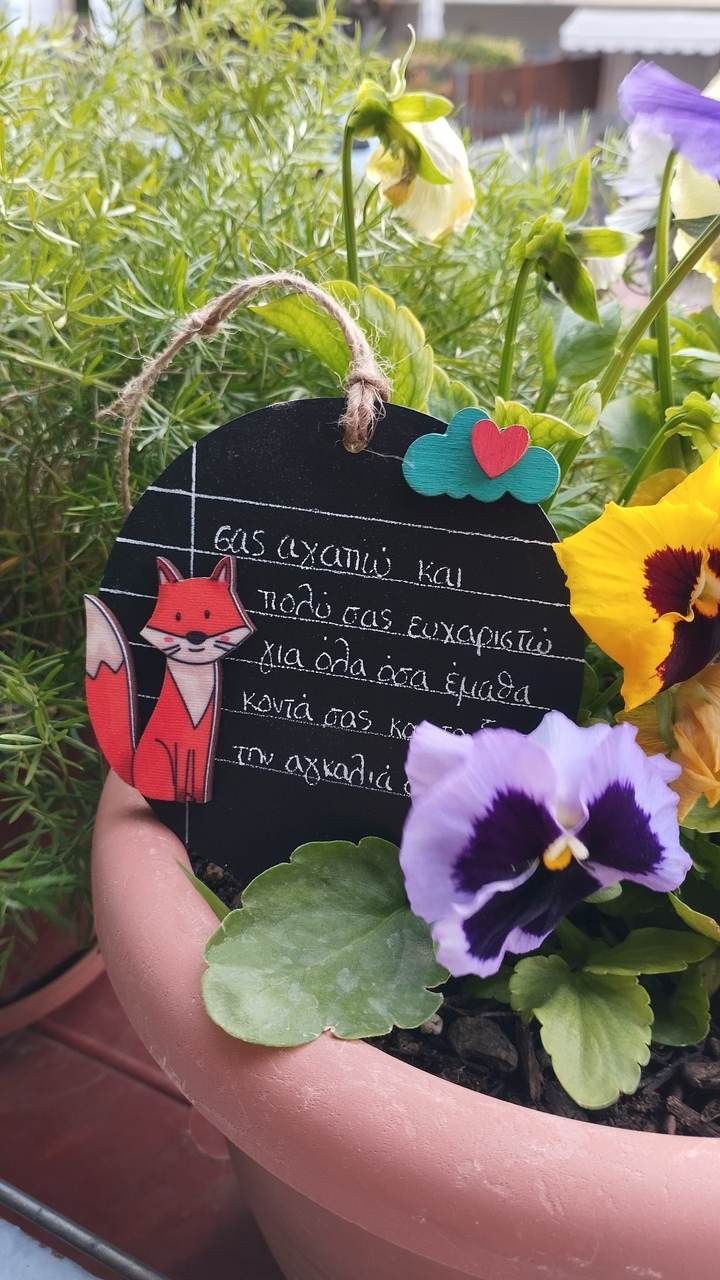 σας αγαπώ και
πολύ σας ευχαριστώ
για όλα όσα έμαθα
κοντά σας
την αγκαλιά